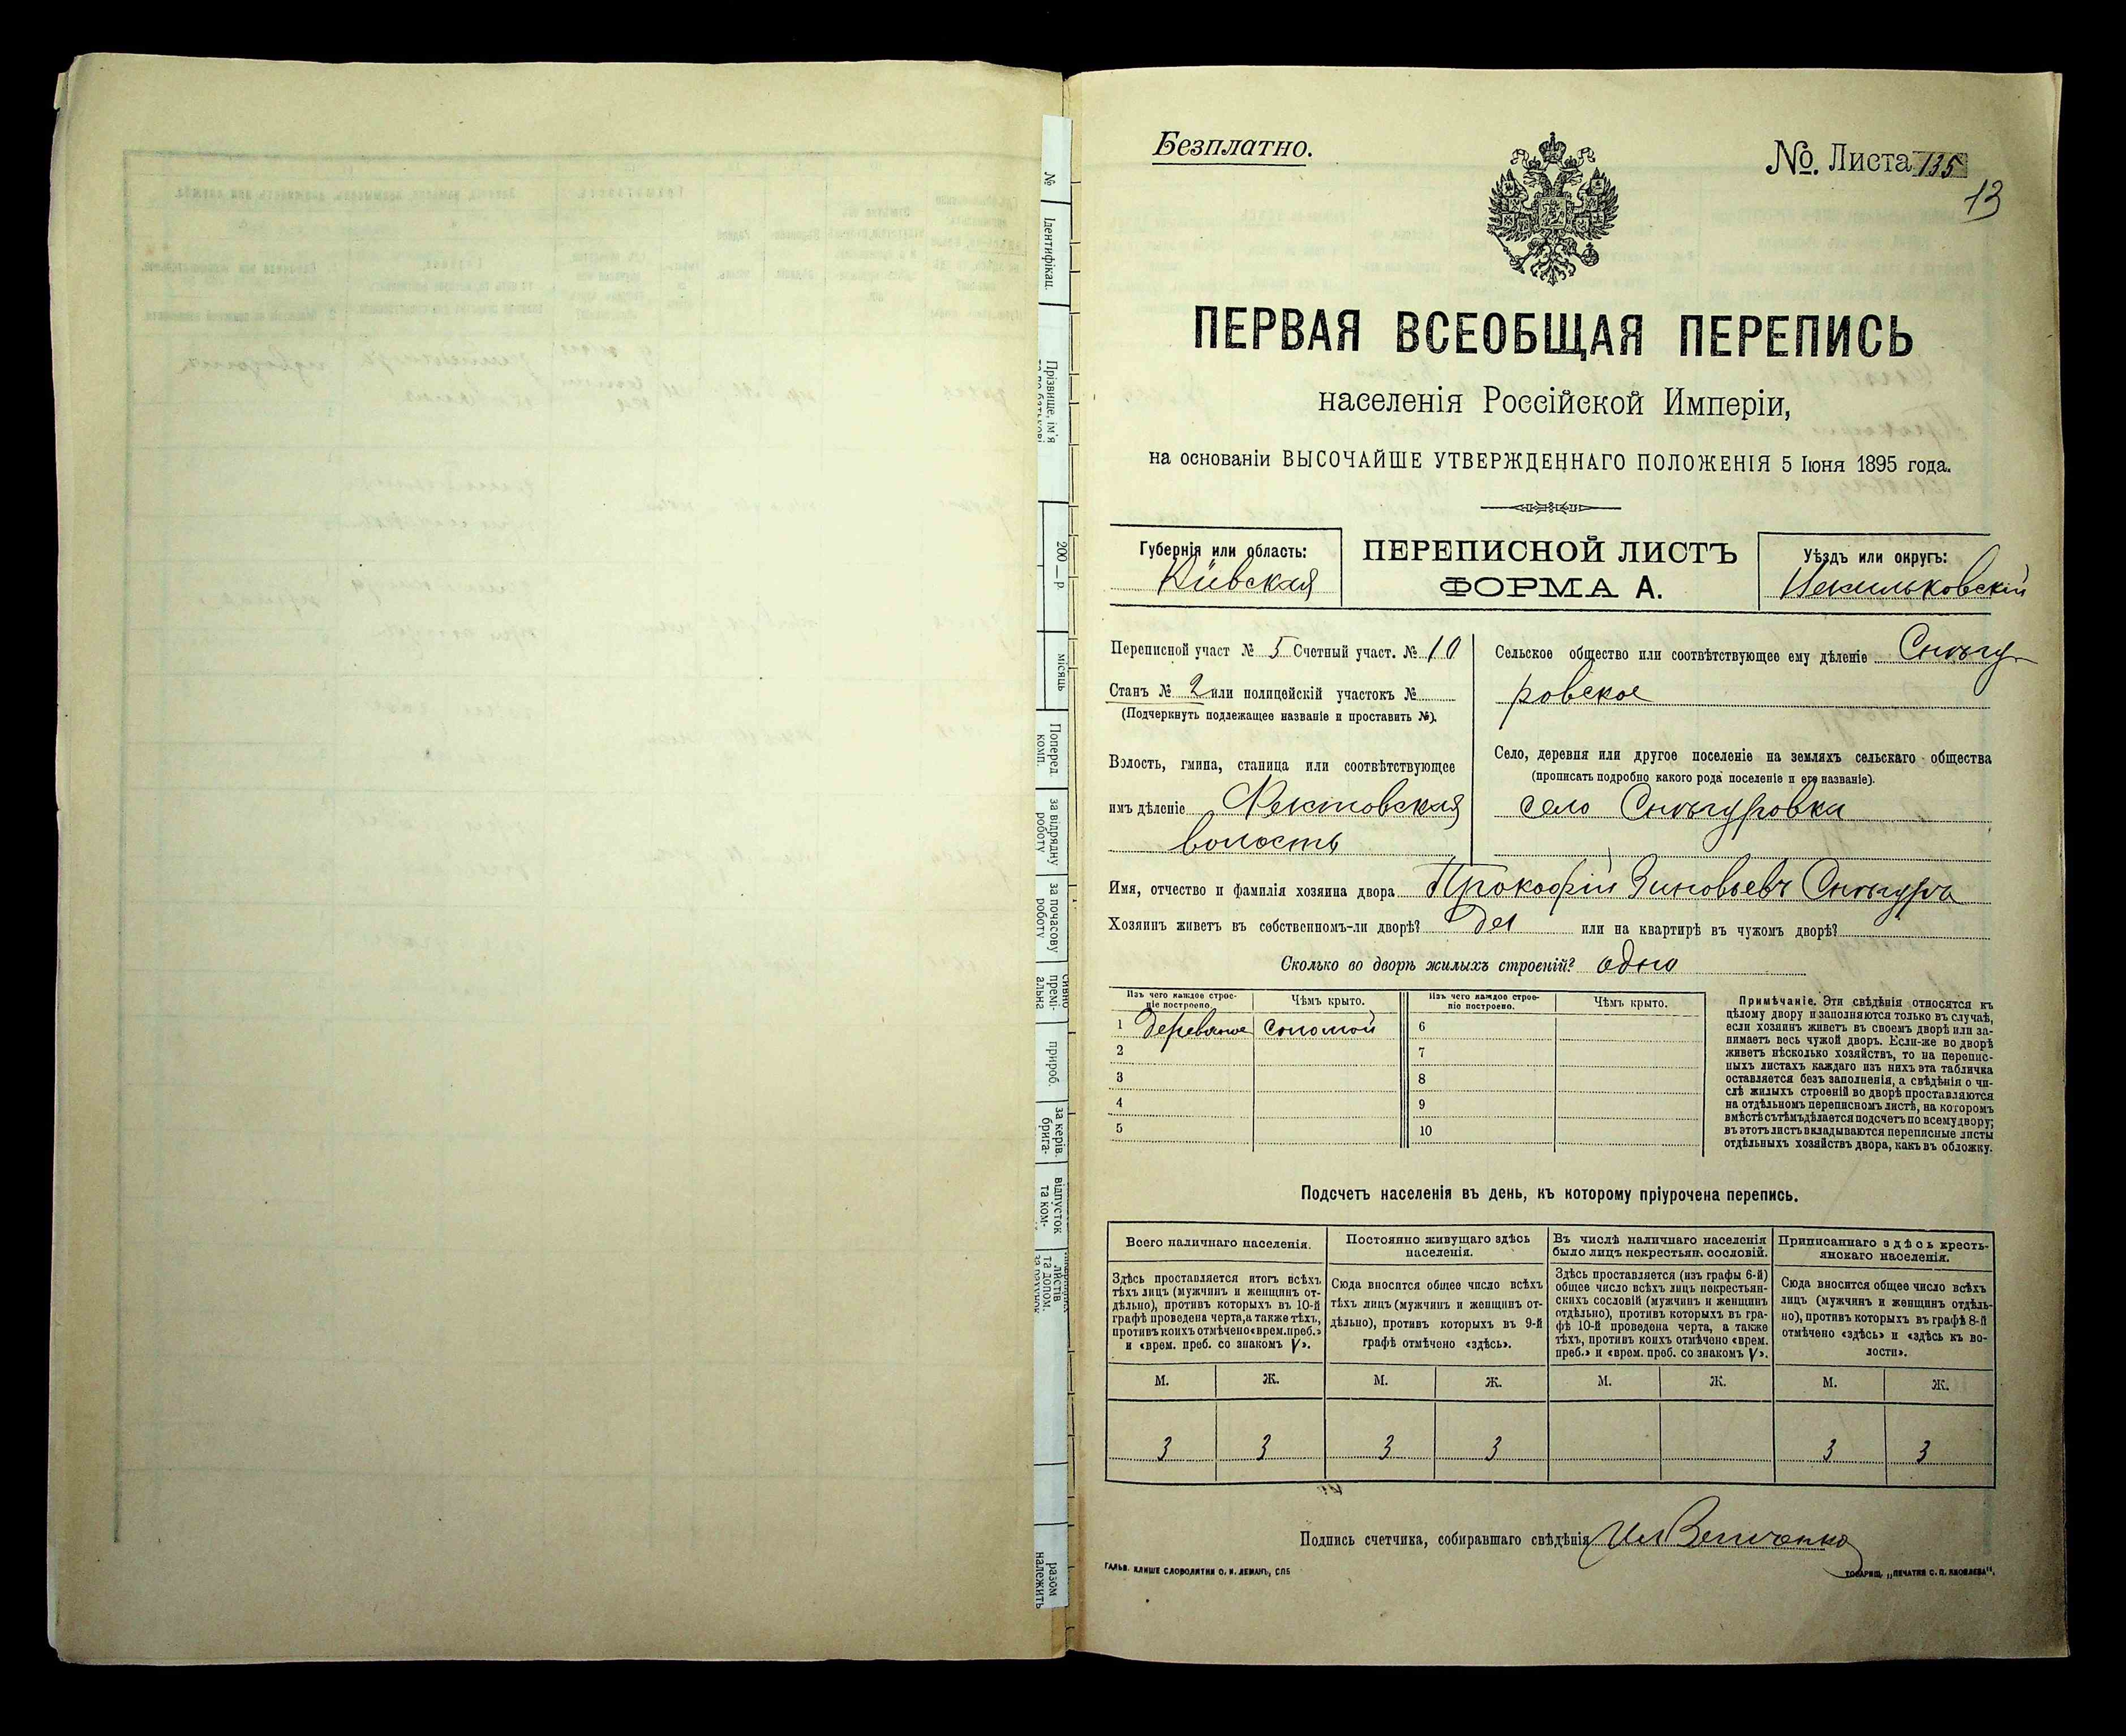 Безплатно.
№. Листа 135
13
ПЕРВАЯ ВСЕОБЩАЯ ПЕРЕПИСЬ
населенія Россійской Имперіи,
на основаніи ВЫСОЧАЙШЕ УТВЕРЖДЕННАГО ПОЛОЖЕНІЯ 5 Іюня 1895 года.
Губернія или область:
Кіевская
ПЕРЕПИСНОЙ ЛИСТЪ
ФОРМА А.
Уѣздъ или округъ:
Переписной участ № 5 Счетный участ. № 10
Станъ № 2 или полицейскій участокъ №
(Подчеркнуть подлежащее названіе и проставить №).
Волость, гмина, станица или соотвѣтствующее
имъ дѣленіе
волость
Сельское общество или соотвѣтствующее ему дѣленіе Снѣгу
ровское
Село, деревня или другое поселеніе на земляхъ сельскаго общества
(прописать подробно какого рода поселеніе и его названіе).
село Снѣгуровка
Имя, отчество и фамилія хозяина двора Прокофій Зиновьевъ Снѣгуръ
Хозяинъ живетъ въ собственномъ-ли дворѣ? да или на квартирѣ въ чужомъ дворѣ?
Сколько во дворѣ жилыхъ строеній? одно
Изъ чего каждое строе-
ніе построено.
Чѣмъ крыто.
Изъ чего каждое строе-
ніе построено.
Чѣмъ крыто.
1 деревяное соломой 6
2 7
3 8
4 9
5 10
Примѣчаніе. Эти свѣдѣнія относятся къ
цѣлому двору и заполняются только въ случаѣ,
если хозяинъ живетъ въ своемъ дворѣ или за-
нимаетъ весь чужой дворъ. Если-же во дворѣ
живетъ нѣсколько хозяйствъ, то на перепис-
ныхъ листахъ каждаго изъ нихъ эта табличка
оставляется безъ заполненія, а свѣдѣнія о чи-
слѣ жилыхъ строеній во дворѣ проставляются
на отдѣльномъ переписномъ листѣ, на которомъ
вмѣстѣ съ тѣмъ дѣлается подсчетъ по всему двору;
въ этотъ листъ вкладываются переписные листы
отдѣльныхъ хозяйствъ двора, какъ въ обложку.
Подсчетъ населенія въ день, къ которому пріурочена перепись.
Всего наличнаго населенія.
Здѣсь проставляется итогъ всѣхъ
тѣхъ лицъ (мужчинъ и женщинъ от-
дѣльно), противъ которыхъ въ 10-й
графѣ проведена черта, а также тѣхъ,
противъ коихъ отмѣчено «врем. преб.»
и «врем. преб. со знакомъ V».
Постоянно живущаго здѣсь
населенія.
Сюда вносится общее число всѣхъ
тѣхъ лицъ (мужчинъ и женщинъ от-
дѣльно), противъ которыхъ въ 9-й
графѣ отмѣчено «здѣсь».
Въ числѣ наличнаго населенія
было лицъ некрестьян. сословій.
Здѣсь проставляется (изъ графы 6-й)
общее число всѣхъ лицъ некрестьян-
скихъ сословій (мужчинъ и женщинъ
отдѣльно), противъ которыхъ въ гра-
фѣ 10-й проведена черта, а также
тѣхъ, противъ коихъ отмѣчено «врем.
преб.» и «врем. преб. со знакомъ V».
Приписаннаго здѣсь кресть-
янскаго населенія.
Сюда вносится общее число всѣхъ
лицъ (мужчинъ и женщинъ отдѣль-
но), противъ которыхъ въ графѣ 8-й
отмѣчено «здѣсь» и «здѣсь къ во-
лости».
М. Ж. М. Ж. М. Ж. М. Ж.
3 3 3 3 3 3
Подпись счетчика, собиравшаго свѣдѣнія
ГАЛЬВ. КЛИШЕ СЛОВОЛИТНИ О. И. ЛЕМАНЪ, СПБ
ТОВАРИЩ. „ПЕЧАТНЯ С. П. ЯКОВЛЕВА".
№
Ідентифікац.
Прізвище, ім'я
200 — р.
місяць
Поперед
комп.
за відрядну
роботу
за почасову
роботу
премі-
альна
прироб.
за керів.
брига-
відпусток
та ком-
листів
та допом.
разом
належить